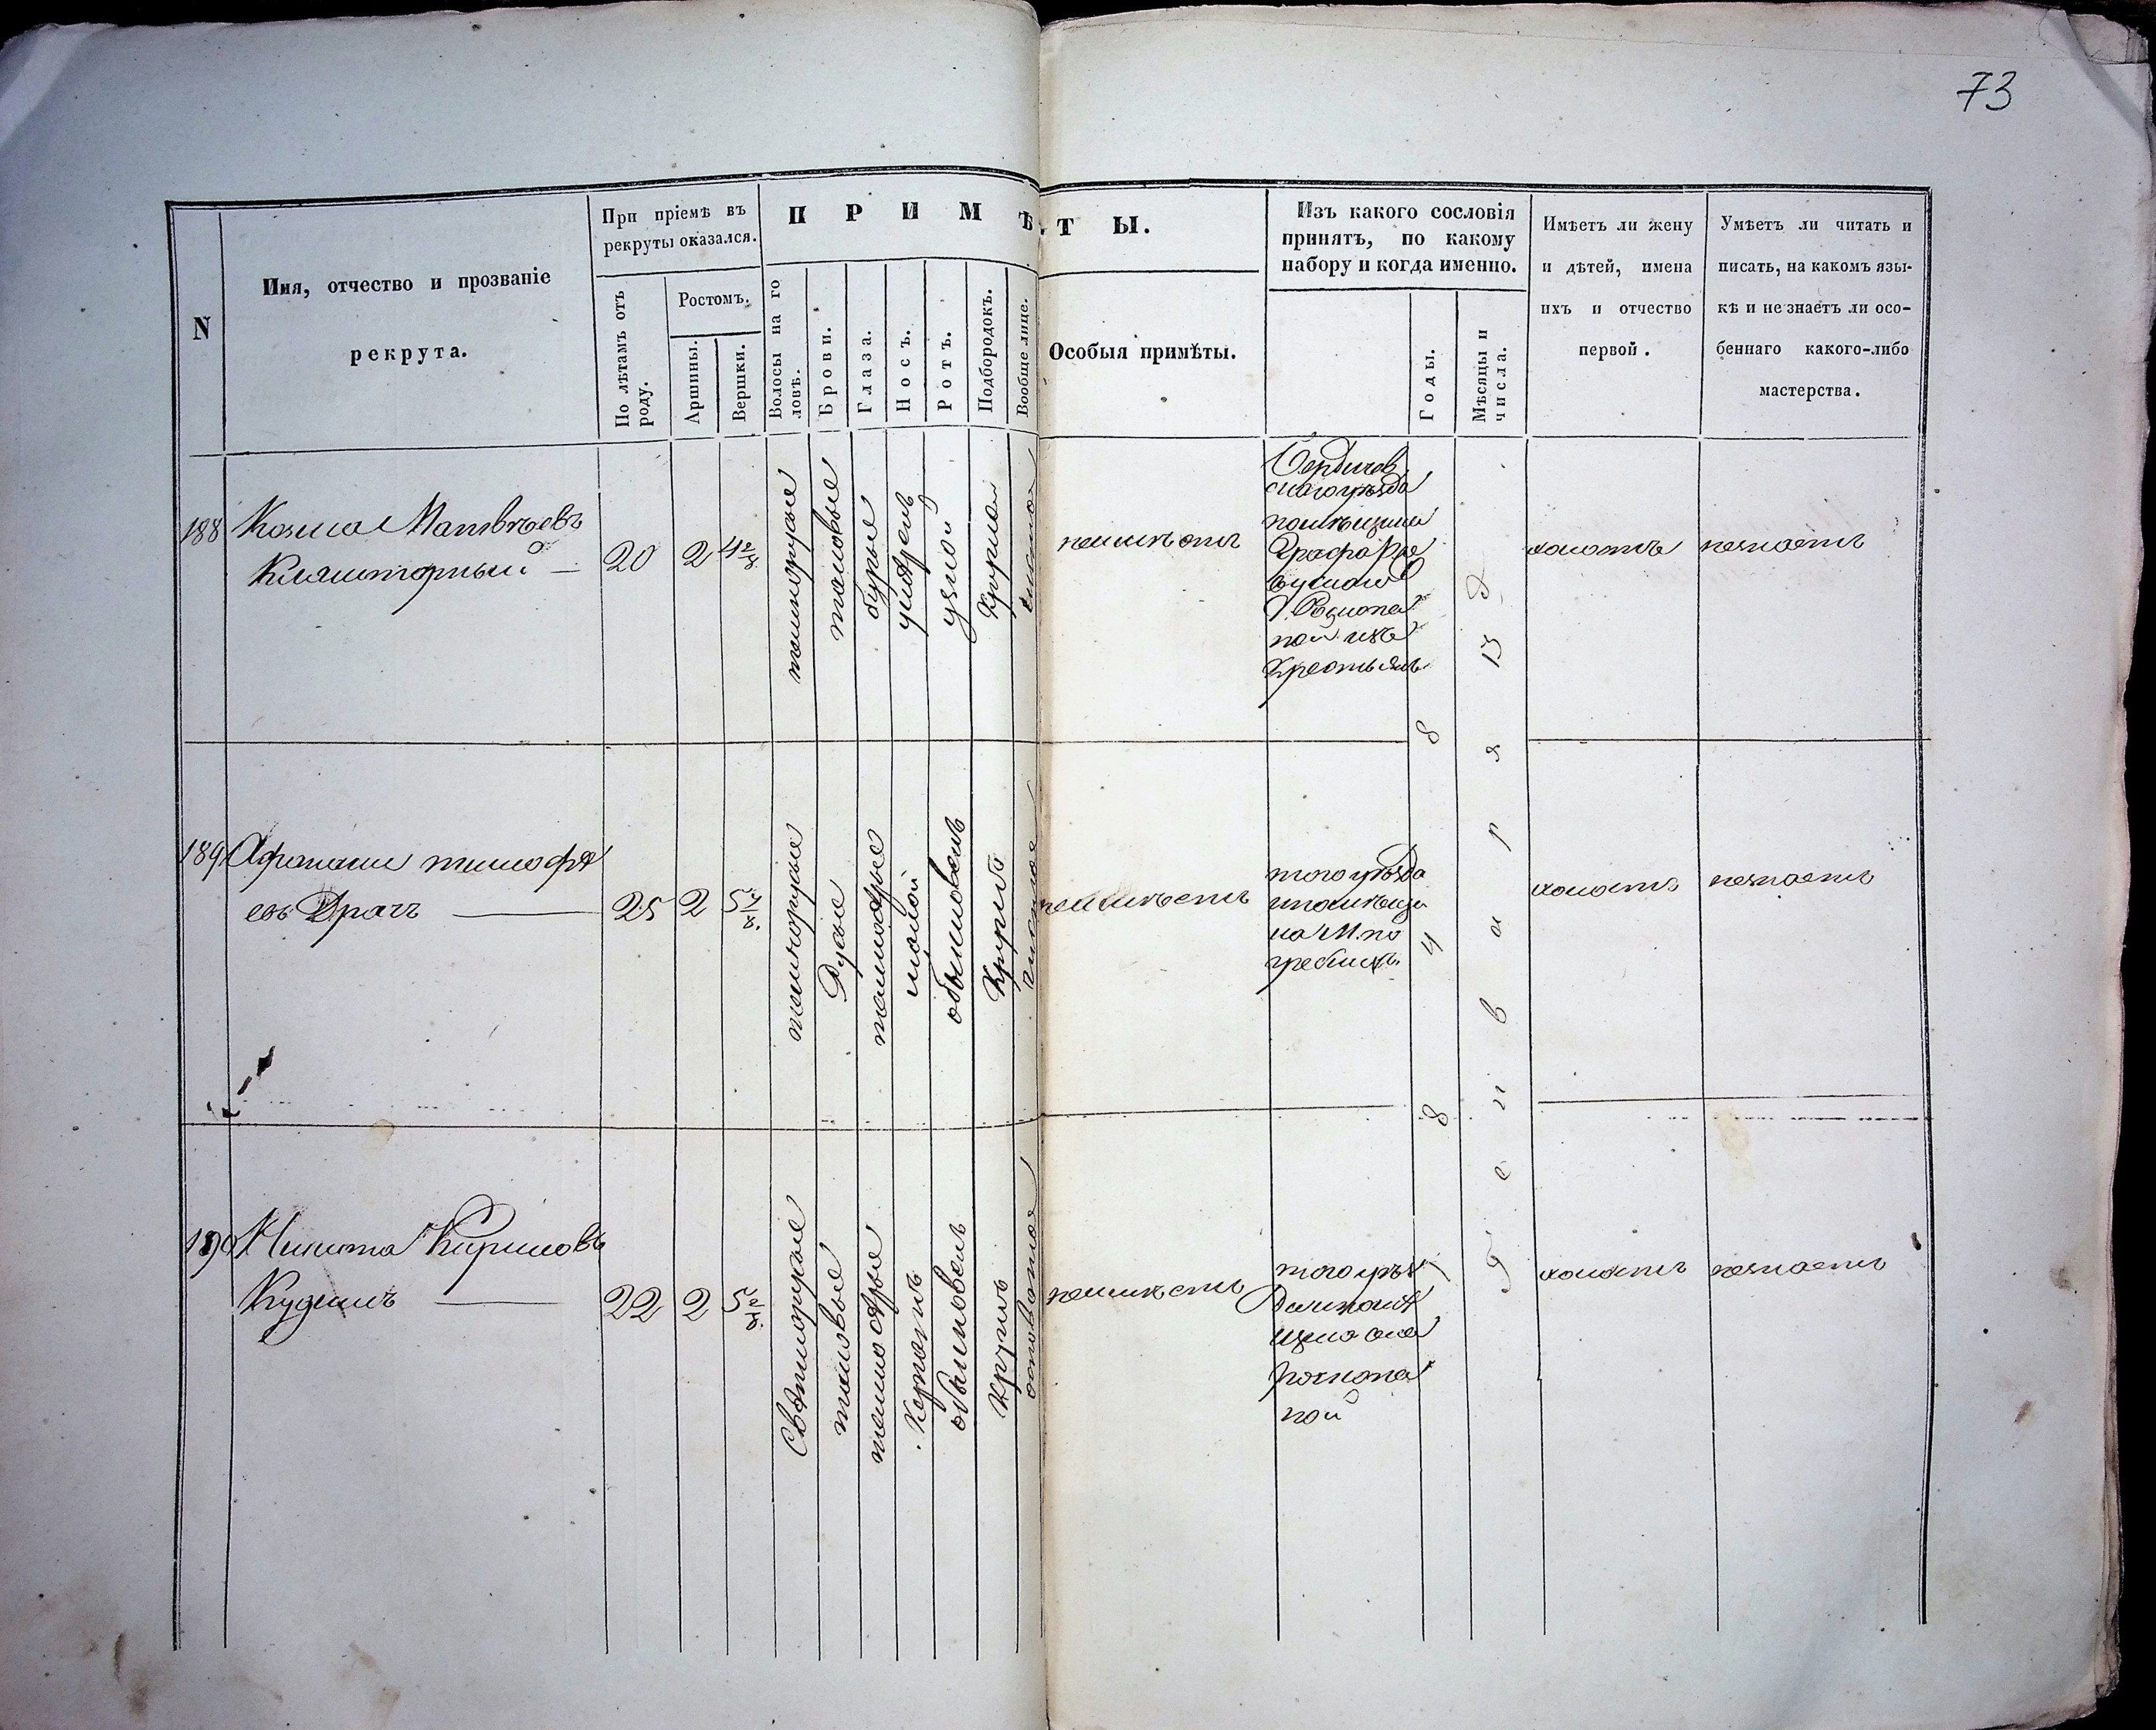 73
N
Имя, отчество и прозваніе
рекрута.
При пріемѣ въ
рекруты оказался.
По лѣтамъ отъ
роду.
Ростомъ.
Аршины.
Вершки.
П Р И М Ѣ Т Ы.
Волосы на го
ловѣ.
Брови.
Глаза.
Носъ.
Ротъ.
Подбородокъ.
Вообще лице.
Особыя примѣты.
Изъ какого сословія
принятъ, по какому
набору и когда именно.
Годы.
Мѣсяцы и
числа.
Имѣетъ ли жену
и дѣтей, имена
ихъ и отчество
первой.
Умѣетъ ли читать и
писать, на какомъ язы-
кѣ и не знаетъ ли осо-
беннаго какого-либо
мастерства.
188
Козма Матвѣевъ
Кляшторный —
20
2
4 2/8
темнорусые
таковые
бурые
умѣрен
узкой
Круглой
чистое
неимѣетъ
Бердичев
скаго уѣзда
помѣщицы
Графа
изъ
Крестьянъ
холостъ
незнаетъ
189
Афанасий тимофе
евъ Драчъ —
25
2
темнорусые
Русые
темносѣрые
малой
обыкновенъ
Круглъ
чистое
неимѣетъ
того уѣзда
и помѣщи
ка М.
холостъ
незнаетъ
190
Никита Кириловъ
—
22
2
5 2/8
Свѣтлорусые
таковые
темносѣрые
обыкновенъ
Круглъ
неимѣетъ
того уѣз
да
холостъ
незнаетъ
8
4
8
Генваря 13 д